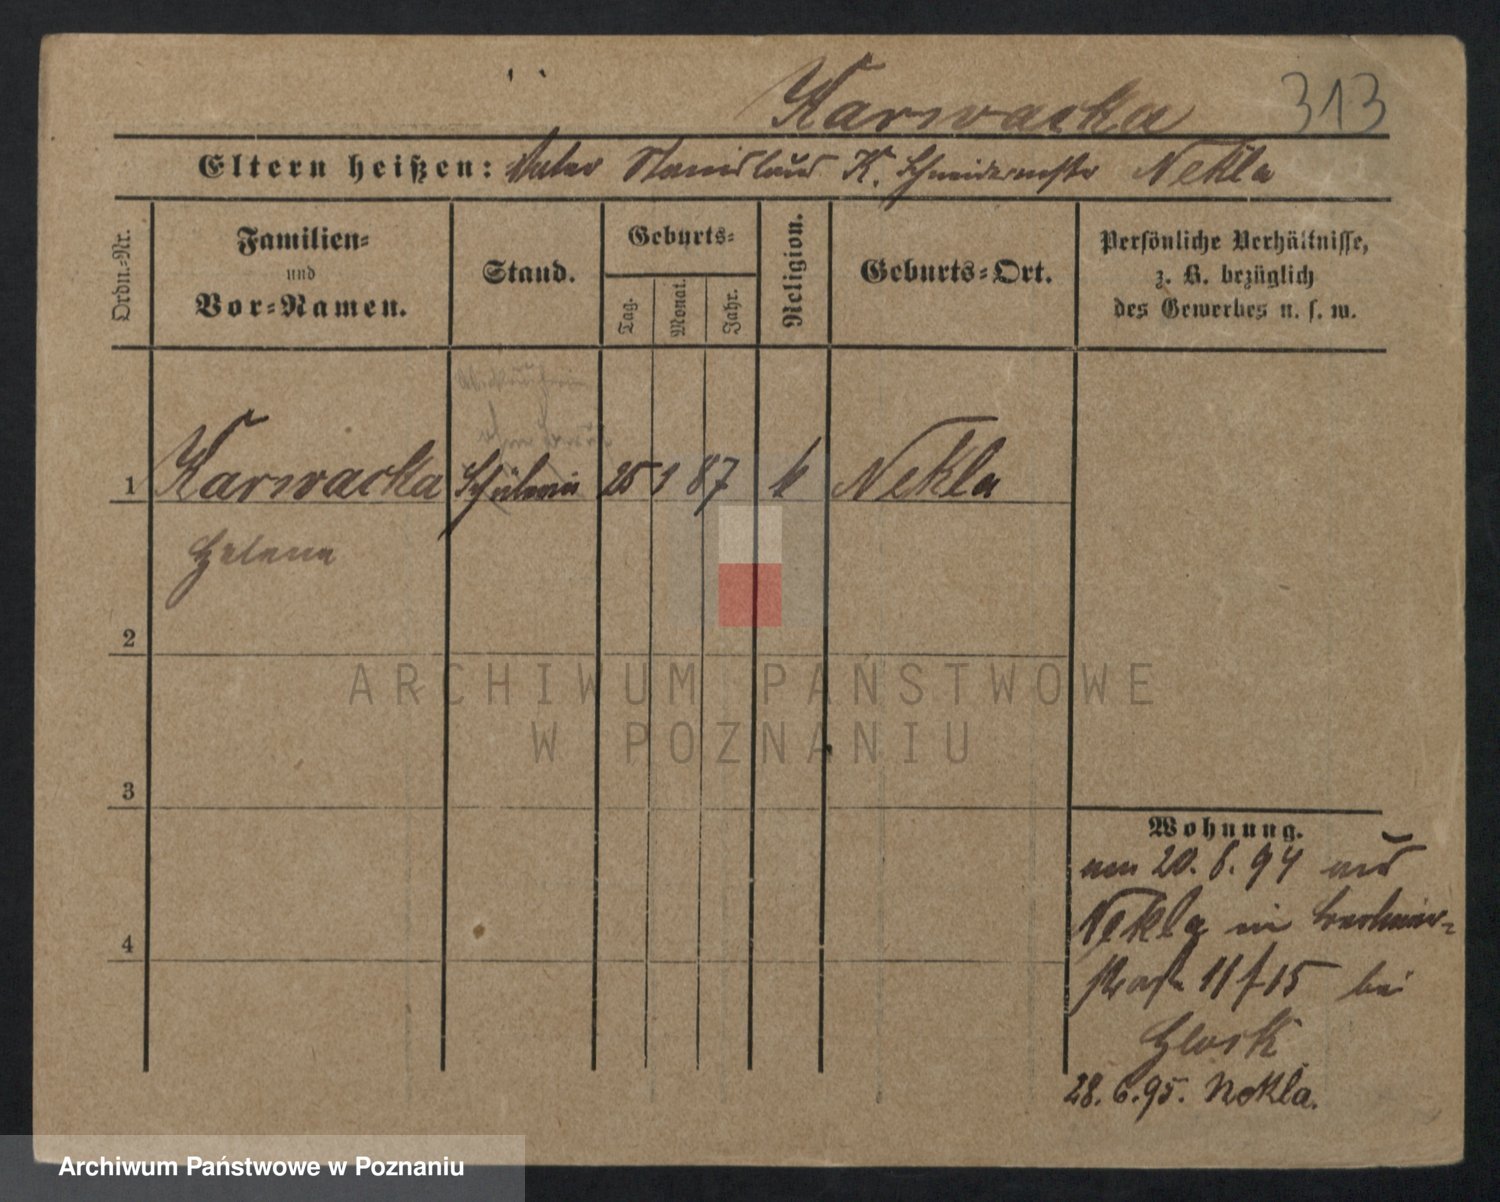 Karwacka 313
Eltern heißen: Vater Stanislaus K. Schneidermstr Nekla
Ordn.-Nr.
Familien-
und
Vor-Namen.
Stand.
Geburts-
Tag. Monat. Jahr.
Religion.
Geburts-Ort.
Persönliche Verhältnisse,
z. B. bezüglich
des Gewerbes u. s. w.
1 Karwacka Schülerin 25 9 87 k Nekla
Helena
2
3
4
Wohnung.
am 20. 8. 94 aus
Nekla in
straße 11/15 bei
28. 6. 95. Nekla.
ARCHIWUM PAŃSTWOWE
W POZNANIU
Archiwum Państwowe w Poznaniu